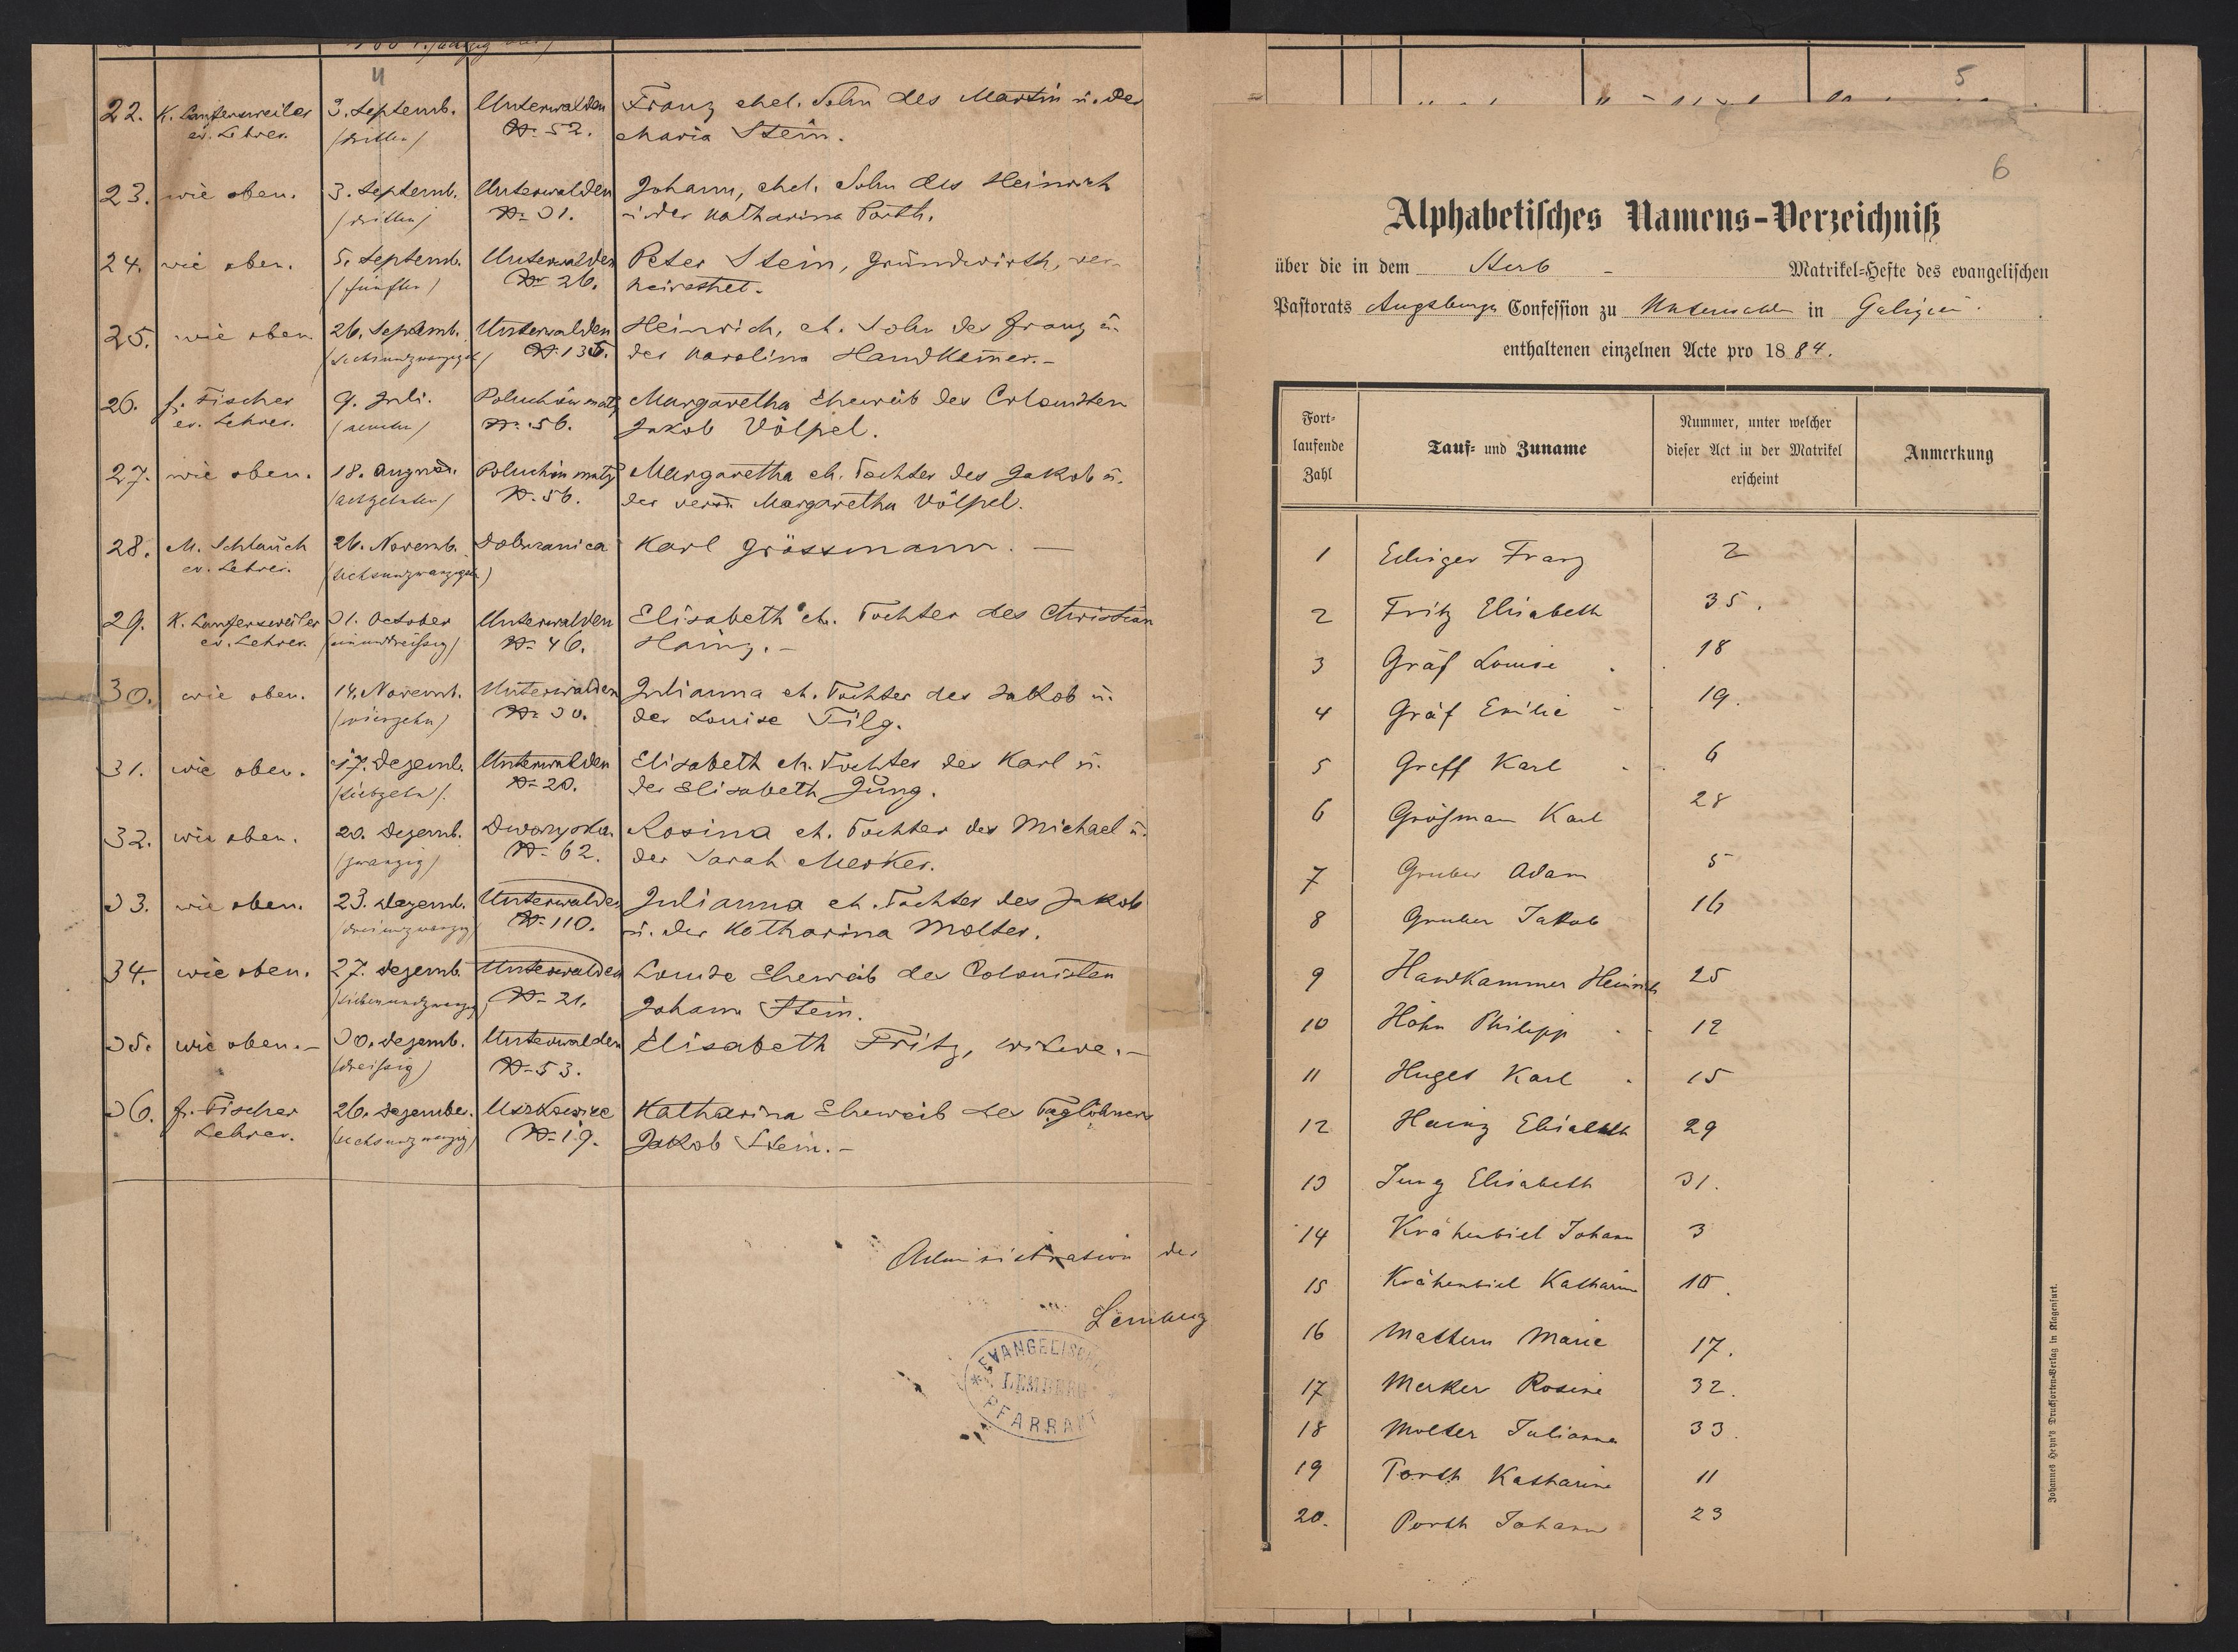 4
22. K. Lanfersweiler 3. Septemb. Unterwalden Franz ehel. Sohn des Martin u. der
ev. Lehrer. (dritten) No 52. Maria Stein.
23. wie oben. 3. Septemb. Unterwalden Johann, ehel. Sohn des Heinrich
(dritten) No 31. u. der Katharina Porth.
24. wie oben. 5. Septemb. Unterwalden Peter Stein, Grundwirth, ver-
(fünften) No 26. heirathet.
25. wie oben 26. Septemb. Unterwalden Heinrich, eh. Sohn des Franz u.
(sechsundzwanzigst) No 135. der Karolina Handkamer.-
26. f. Fischer 9. Juli. Poluchow maty Margaretha Eheweib des Colonisten
ev. Lehrer. (neunten) No 56. Jakob Völpel.
27. wie oben. 18. August. Poluchow maty Margaretha eh. Tochter des Jakob u.
(achtzehnten) No 56. der Margaretha Völpel.
28. M. Schlauch 26. Novemb. Dobrzanica Karl Grössmann. —
ev. Lehrer. (sechsundzwanzigsten)
29. K. Lanfersweiler 31. October Unterwalden Elisabeth eh. Tochter des Christian
ev. Lehrer. (einunddreißig) No 46. Hainz.-
30. wie oben. 14. Novemb. Unterwalden Julianna eh. Tochter des Jakob u.
(vierzehn) No 30. der Louise Filg.
31. wie oben. 17. Dezemb. Unterwalden Elisabeth eh. Tochter des Karl u.
(siebzehn). No 20. der Elisabeth Jung.
32. wie oben. 20. Dezemb. Rosina eh. Tochter des Michael u.
(zwanzig) No 62. der Sarah Merker.
33. wie oben. 23. Dezemb. Unterwalden Julianna eh. Tochter des Jakob
(dreiundzwanzig) No 110. u. der Katharina Molter.
34. wie oben. 27. Dezemb. Unterwalden Louise Eheweib des Colonisten
(siebenundzwanzig) No 21. Johann Stein.
35. wie oben.- 30. Dezemb. Unterwalden Elisabeth Fritz, Witwe.-
(dreißig) No 53.
36. f. Fischer 26. Dezember. Uszkowice Katharina Eheweib des Taglöhners
Lehrer. (sechsundzwanzig) No 19. Jakob Stein.-
Administration des
Lemberg
EVANGELISCHES
LEMBERG
PFARRAMT
5
6
Alphabetisches Namens-Verzeichniß
über die in dem Sterb - Matrikel-Hefte des evangelischen
Pastorats Augsburger Confession zu Unterwalden in Galizien.
enthaltenen einzelnen Acte pro 1884.
Fort-
laufende
Zahl
Tauf- und Zuname
Nummer, unter welcher
dieser Act in der Matrikel
erscheint
Anmerkung
1 Ediger Franz 2
2 Fritz Elisabeth 35.
3 Gräf Louise 18
4 Gräf Emilie 19.
5 Greff Karl 6
6 Größman Karl 28
7 Gruber Adam 5
8 Gruber Jakob 16
9 Handkammer Heinrich 25
10 Höhn Philipp 12
11 Huget Karl 15
12 Hainz Elisabeth 29
13 Jung Elisabeth 31.
14 Krähenbiel Johann 3
15 Krähenbiel Katharina 10.
16 Mathern Marie 17.
17 Merker Rosine 32.
18 Molter Julianna 33.
19 Porth Katharina 11
20. Porth Johann 23
Johannes Heyn's Drucksorten-Verlag in Klagenfurt.